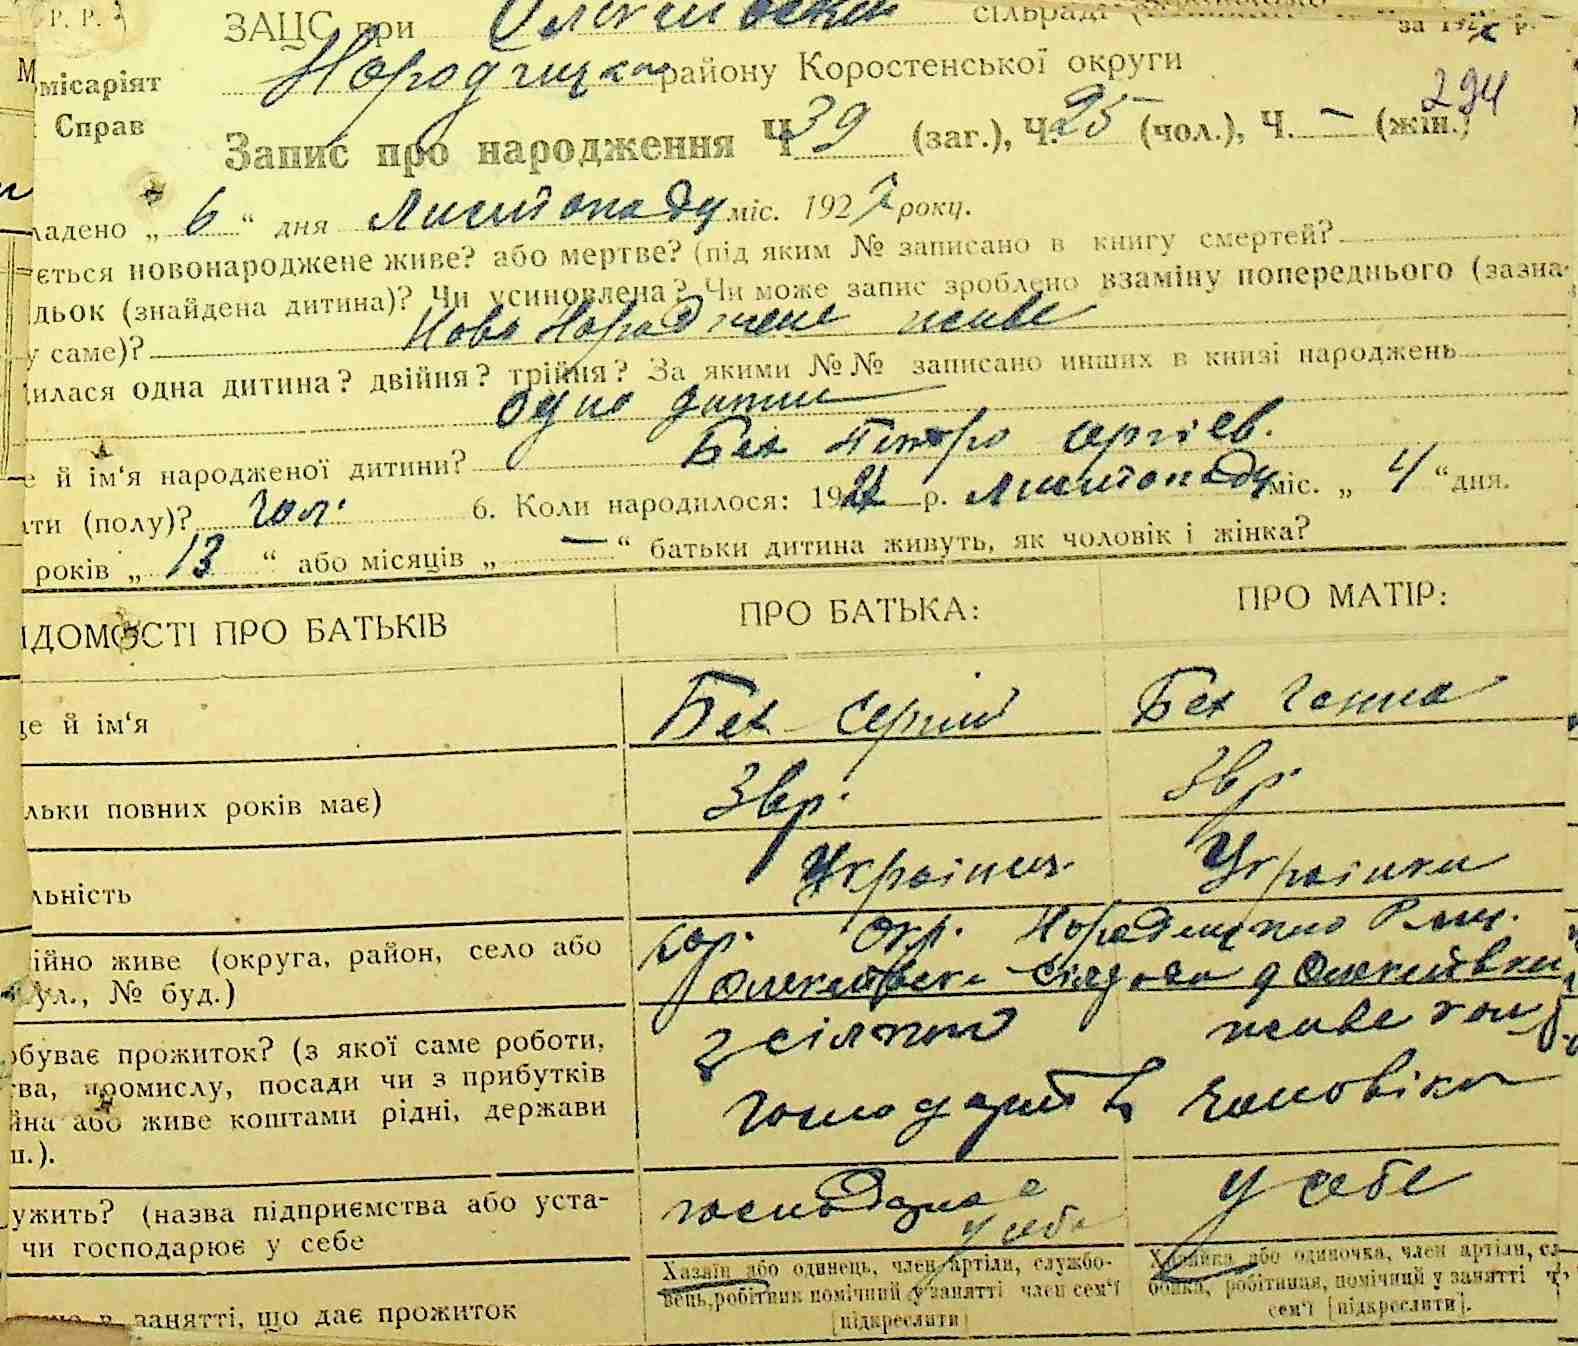 Р. Р.
ЗАЦС при сільраді за 192 р.
місаріят
Народицького району Коростенської округи
Справ
294
Запис про народження Ч 39 (заг.), Ч. 25 (чол.), Ч. — (жін.)
ладено „ 6 “ дня Листопаду міс. 1927 року.
ється новонароджене живе? або мертве? (під яким № записано в книгу смертей?
дьок (знайдена дитина)? Чи усиновлена? Чи може запис зроблено взаміну попереднього (зазна-
у саме)? Ново Народжене живе
илася одна дитина? двійня? трійня? За якими №№ записано инших в книзі народжень
одно дитина
е й ім‘я народженої дитини? Бех Петро Сергієв.
ати (полу)? чол. 6. Коли народилося: 1927 р. Листопаду міс. „ 4 “ дня.
років „ 13 “ або місяців „ — “ батьки дитина живуть, як чоловік і жінка?
ІДОМОСТІ ПРО БАТЬКІВ ПРО БАТЬКА: ПРО МАТІР:
ще й ім‘я Бех Сергій Бех Ганна
льки повних років має)
льність Українец Українка
ійно живе (округа, район, село або Кор. Окр. Народицько Рай.
ул., № буд.) Олексіївська сілрада д Олексіївка
обуває прожиток? (з якої саме роботи, з сільського живе кошт.
тва, промислу, посади чи з прибутків
йна або живе коштами рідні, держави господарства чоловіка
ш.).
ужить? (назва підприємства або уста- господарює у себе у себе
чи господарює у себе
Хазяїн або одинець, член артіли, службо- Хазяйка або одиночка, член артіли, сл
вець, робітник помічний у занятті член сем‘ї бовка, робітниця, помічний у занятті ч
[підкреслити] сем‘ї [підкреслити].
в занятті, що дає прожиток